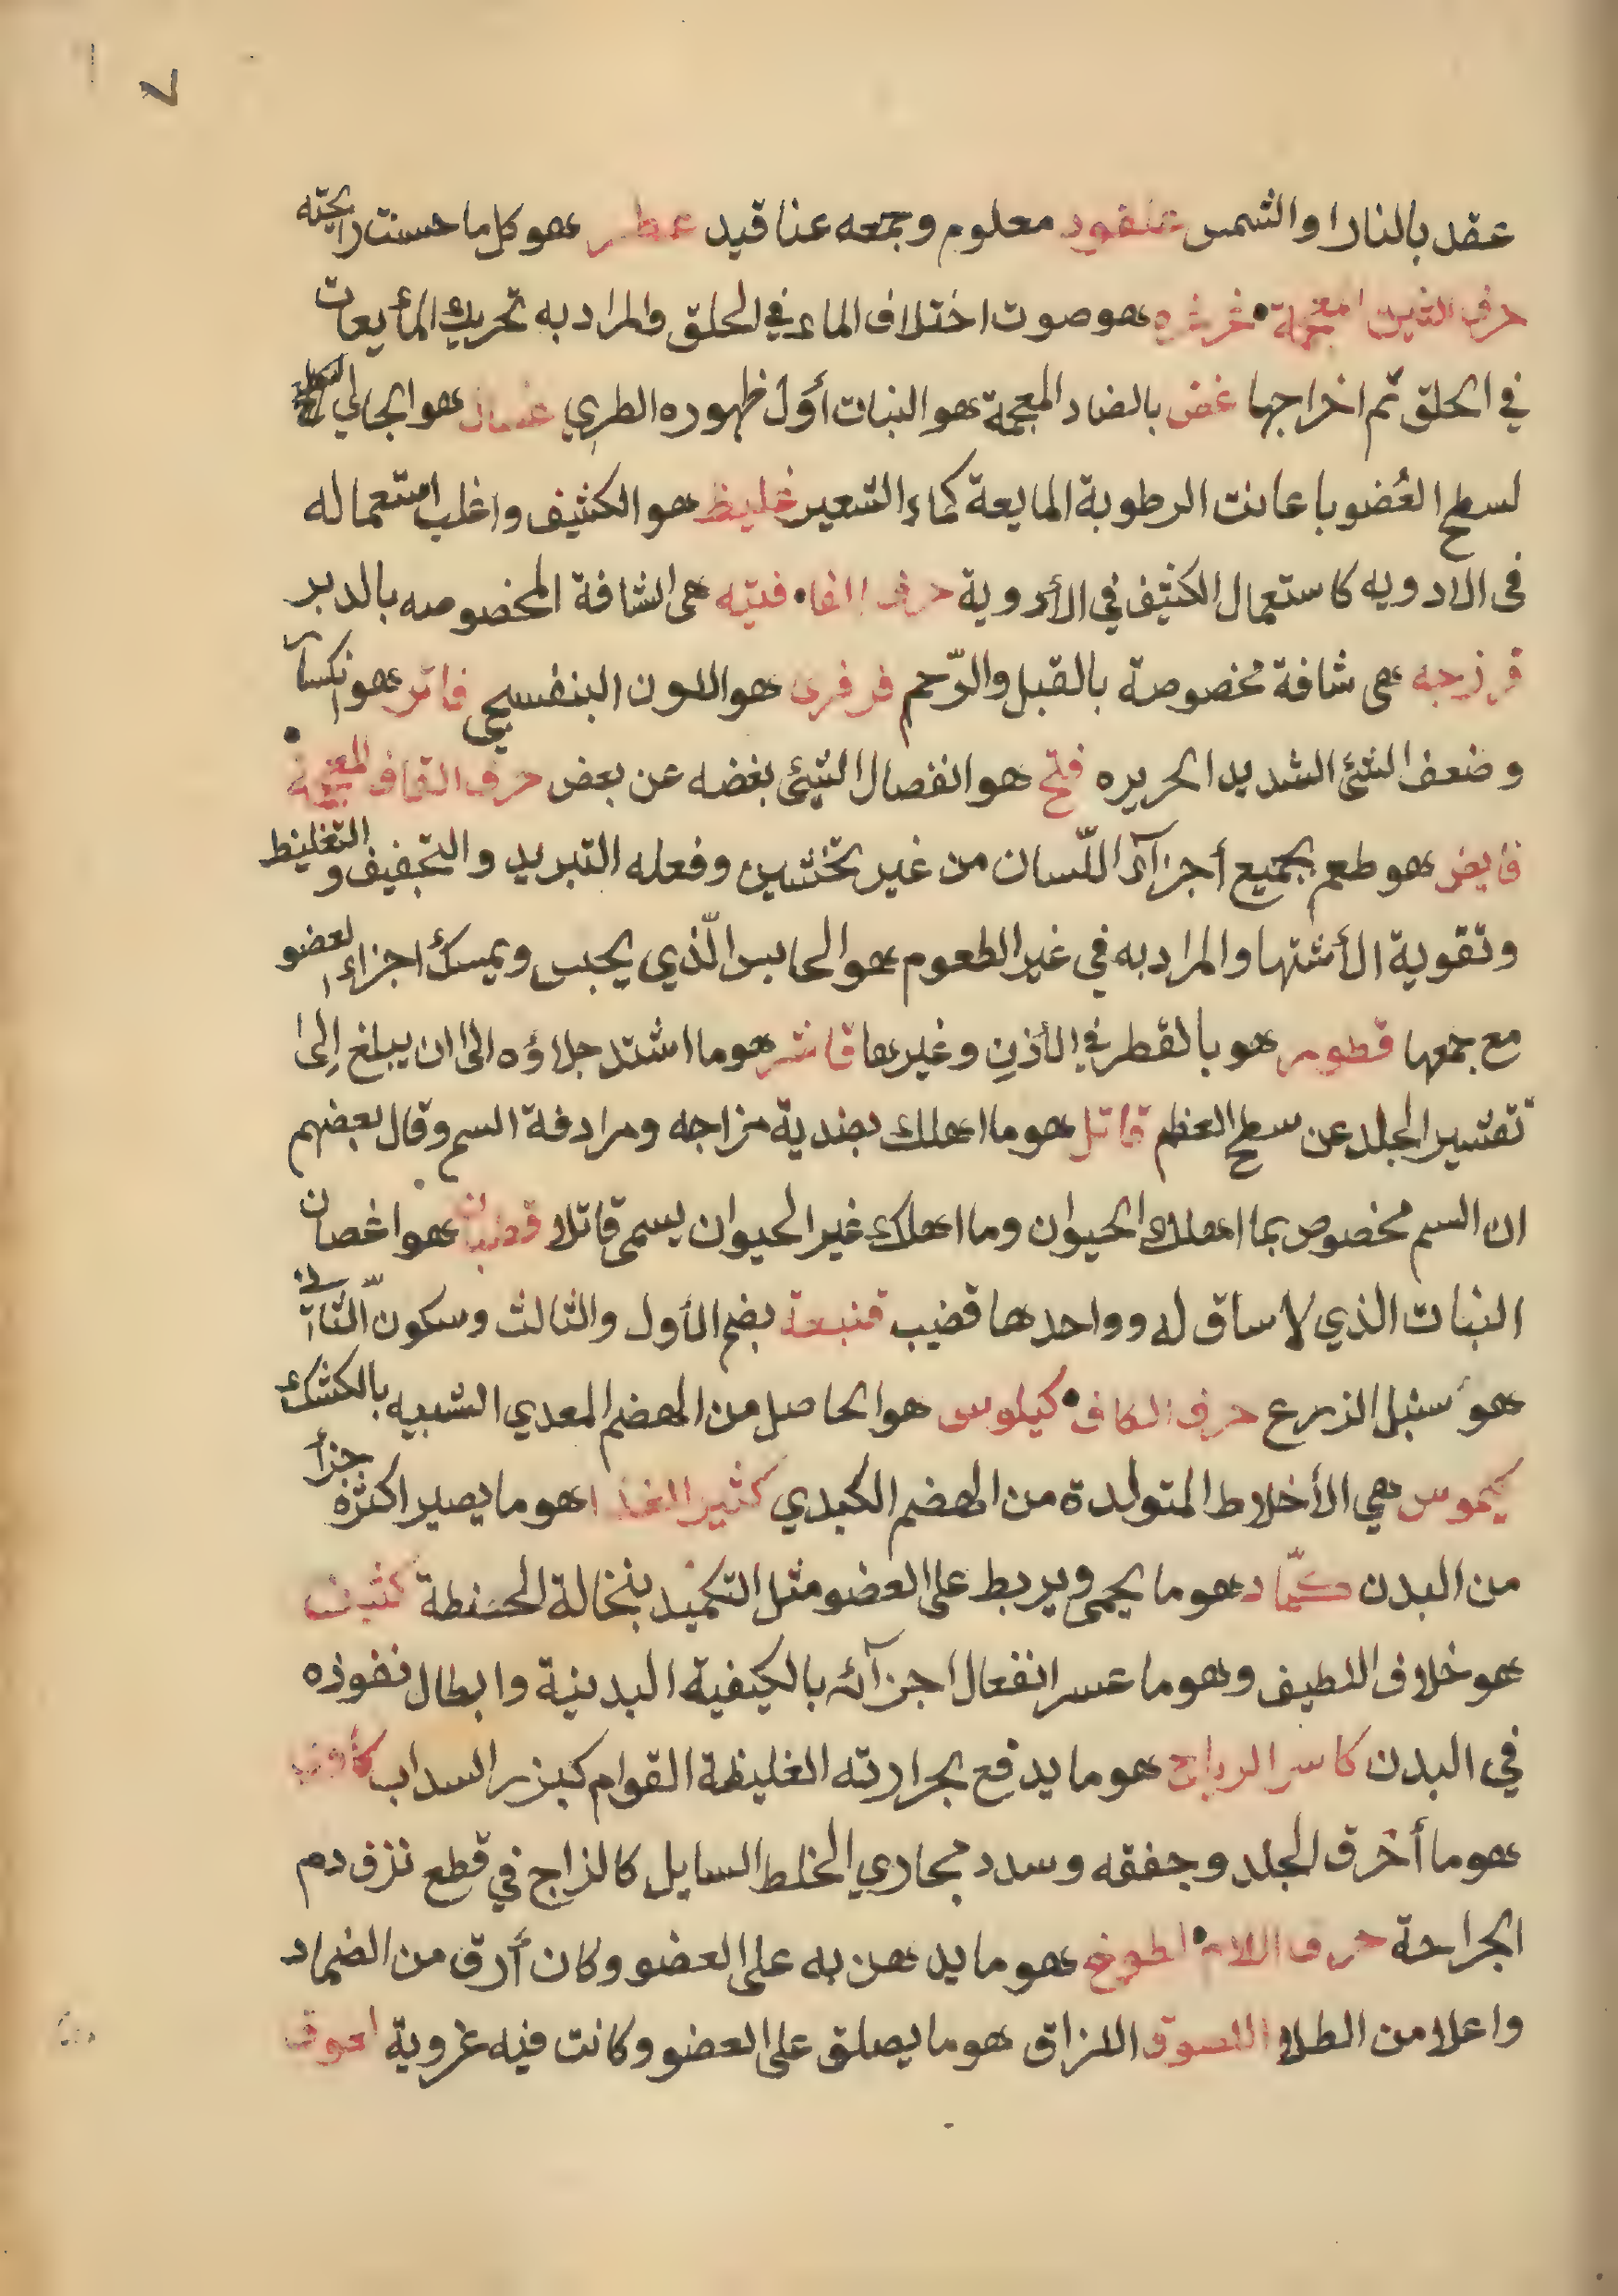 ٧
عقد بالنار او الشمس عنقود معلوم وجمعه عناقيد عطر هو كل ما حسنت رايحته
حرف الغين المعجمة غرغره هو صوت اختلاف الماء في الحلق والمراد به تحريك المأيعات
في الحلق ثم اخراجها غض بالضاد المعجمة هو النبات أول ظهوره الطري غسال هو الجالي
لسطح العُضو باعانت الرطوبة المايعة كماء الشعير غليظ هو الكثيف واغلب استعماله
فى الادويه كاستعمال الكثيف في الأدوية حرف الفاء فتيله هى الشافة المخصوصه بالدبر
فرزجه هى شافة مخصوصة بالقبل والرّحم فرفرى هو اللون البنفسجي فاتر هو انكسار
وضعف الشئ الشديد الحريره فتح هو انفصال الشئ بغضه عن بعض حرف القاف المعجمة
قابض هو طعم يجميع أجزآء اللّسان من غير تخشين وفعله التبريد والتجفيف والتغليظ
وتقوية الأشتها والمراد به في غير الطعوم هو الحابس الّذي يحبس ويمسك اجزاء العضو
مع جمعها قطور هو بالقطر في الأذن وغيرها قاشر هو ما اشتد جلاؤه الى ان يبلغ إلى
تقشير الجلد عن سطح العظم قاتل هو ما اهلك بضدية مزاجه ومرادفة السم وقال بعضهم
ان السم مخصوص بما اهلك الحيوان وما اهلك غير الحيوان يسمى قاتلا قضبان هو اغصان
النبات الذي لا ساق له وواحدها قضيب قنبعة بضم الأول والثالث وسكون الثّاني
هو سنبل الزرع حرف الكاف كيلوس هو الحاصل من الهضم المعدي الشبيه بالكشك
كيموس هي الأخلاط المتولدة من الهضم الكبدي كثير الغذا هو ما يصير اكثره جزأ
من البدن كمّاد هو ما يحمى ويربط على العضو مثل التكميد بنخالة الحنطة كثيف
هو خلاف اللطيف وهو ما عسر انفعال اجزآئه بالكيفية البدنية وابطال نفوذه
في البدن كاسر الرياح هو ما يدفع بحرارته الغليظة القوام كبزر السداب كأوى
هو ما أخرق الجلد وجففه وسدد مجاري الخلط السايل كالزاج في قطع نزف دم
الجراحة حرف اللام لطوخ هو ما يدهن به على العضو وكان أرق من الضماد
واعلا من الطلاء اللصوق اللزاق هو ما يصلق على العضو وكانت فيه غروية لعوق